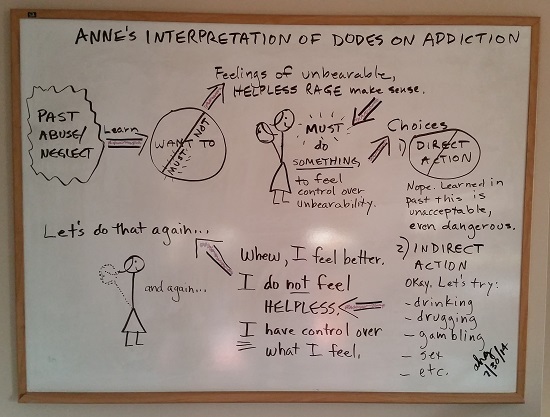 ANNE'S INTERPRETATION OF DODES ON ADDICTION
PAST
ABUSE/
NEGLECT
Learn
WANT TO
MUST NOT
Feelings of unbearable,
HELPLESS RAGE make sense.
MUST
do
SOMETHING
to feel
control over
unbearability.
Choices
1) DIRECT
ACTION
Nope. Learned in
past this is
unacceptable,
even dangerous.
2) INDIRECT
ACTION
Okay. Let's try:
- drinking
- drugging
- gambling
- sex
- etc.
Whew, I feel better.
I do not feel
HELPLESS.
I have control over
what I feel.
Let's do that again...
and again...